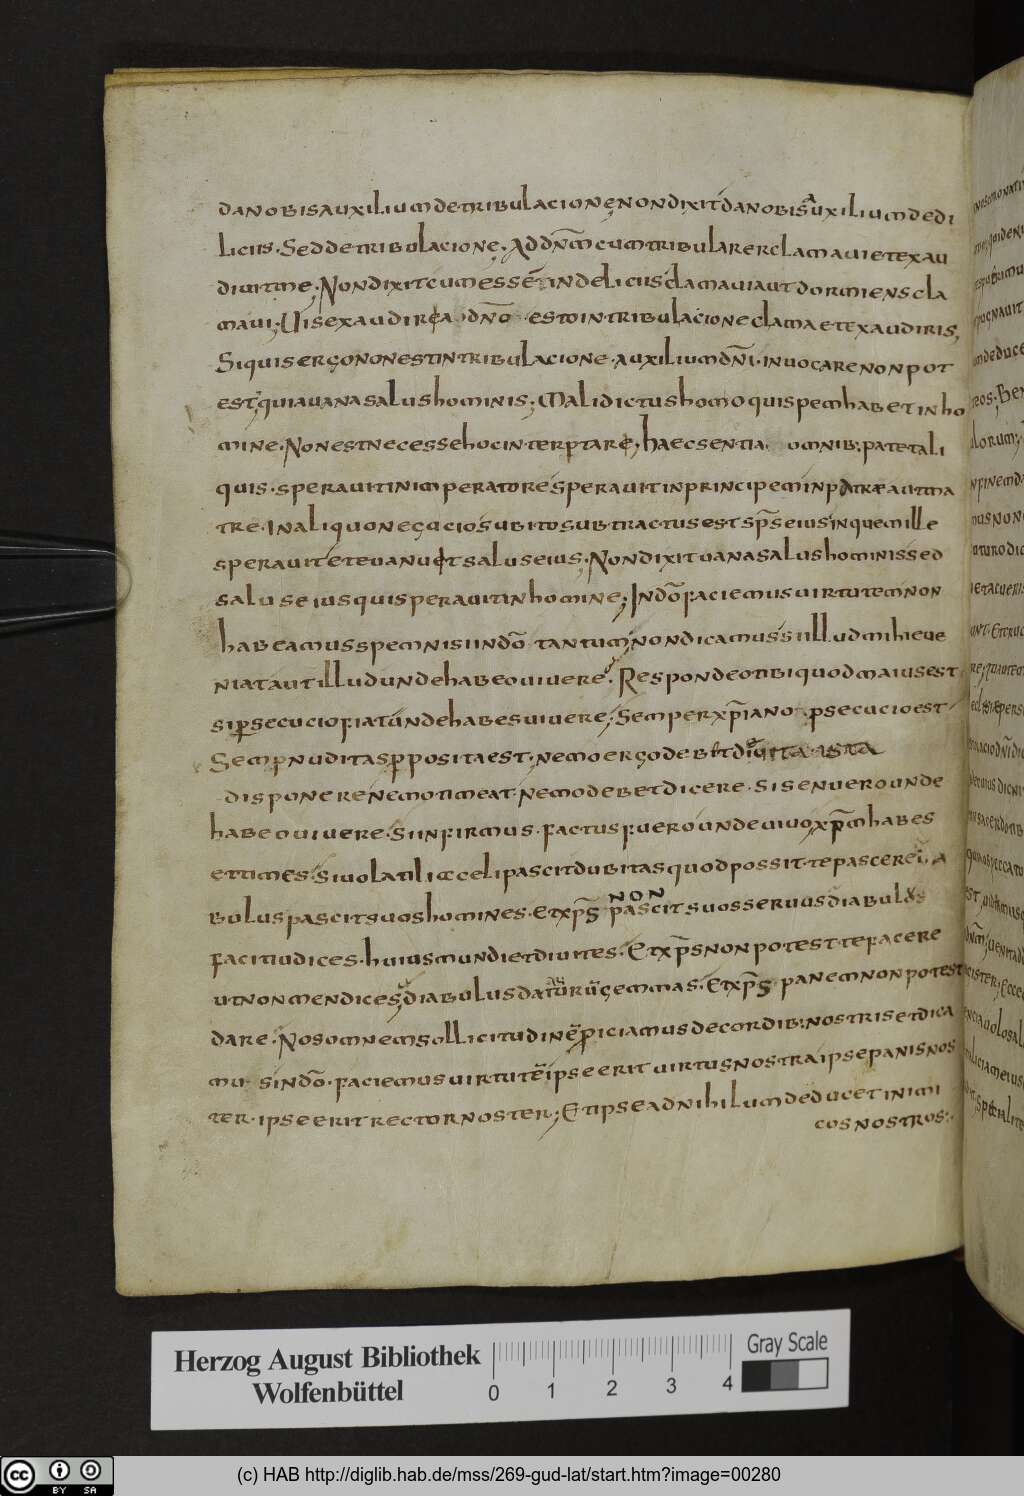 da nobis auxilium de tribulacione non dixit da nobis auxilium de di
liciis. Sed de tribulacione. Ad dñm cum tribularer clamaui et exau
diuit me; Non dixit cum essē in deliciis clamaui aut dormiens cla
maui; Uis exaudiri a dño. esto in tribulacione clama et exaudiris;
Si quis ergo non est in tribulacione. auxilium dñi. inuocare non pot
est, quia uana salus hominis; Malidictus homo qui spem habet in ho
mine. Non est necesse hoc interptare; haec sentia omnib; patet ali
quis. sperauit in imperatore sperauit in principem in patre aut ma
tre. In aliquo negucio subito subtractus est sps eius in quem ille
sperauit et euanuit salus eius; Non dixit uana salus hominis sed
salus eius qui sperauit in homine; In dō faciemus uirtutem non
habeamus spem nisi in dō tantum; non dicamus si illud mihi eue
niat aut illud unde habeo uiuere; Respondeo tibi quod maius est
si psecucio fiat unde habes uiuere; Semper xpiano. psecucio est
Semp nuditas pposita est. nemo ergo debet diuita ista
disponere nemo timeat. nemo debet dicere. si senuero unde
habeo uiuere. Si infirmus. factus fuero unde uiuo xpm habes
et times. Si uolatilia celi pascit dubitas quod possit te pascere; Dia
bulus pascit suos homines. Et xps non pascit suos seruus diabulus
facit iudices. huius mundi et diuites. Et xps non potest te facere
ut non mendices; diabulus dat aurū gemmas. Et xps panem non potest
dare. Nos omnem sollicitudinē piciamus de cordib; nostris et dica
mus in dō. faciemus uirtutē ipse erit uirtus nostra ipse panis nos
ter. ipse erit rector noster; Et ipse ad nihilum deducet inimi
cos nostros:.
Herzog August Bibliothek
Wolfenbüttel
0 1 2 3 4
Gray Scale
cc BY SA
(c) HAB http://diglib.hab.de/mss/269-gud-lat/start.htm?image=00280